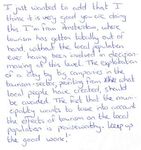 I just wanted to add that I
think it is very good you are doing
this. I'm from Amsterdam, where
tourism has gotten totally out of
hand, without the local population
ever having been involved in decision-
making at this level. The exploitation
of a city by big companies in the
tourism sector, profiting from what
local people have created, should
be avoided. The fact that the muni-
cipality wants to take into account
the effects of tourism on the local
population is praiseworthy. Keep up
the good work!